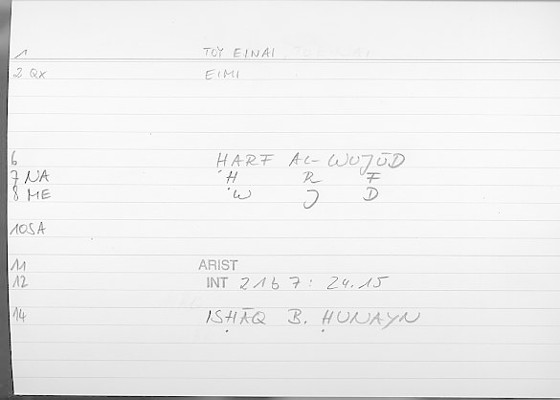 1 TOY EINAI
2 QX EIMI
6 ḤARF AL-WUJŪD
7 NA Ḥ R F
8 ME W J D
10SA
11 ARIST
12 INT 2167: 24.15
14 ISḤĀQ B. ḤUNAYN